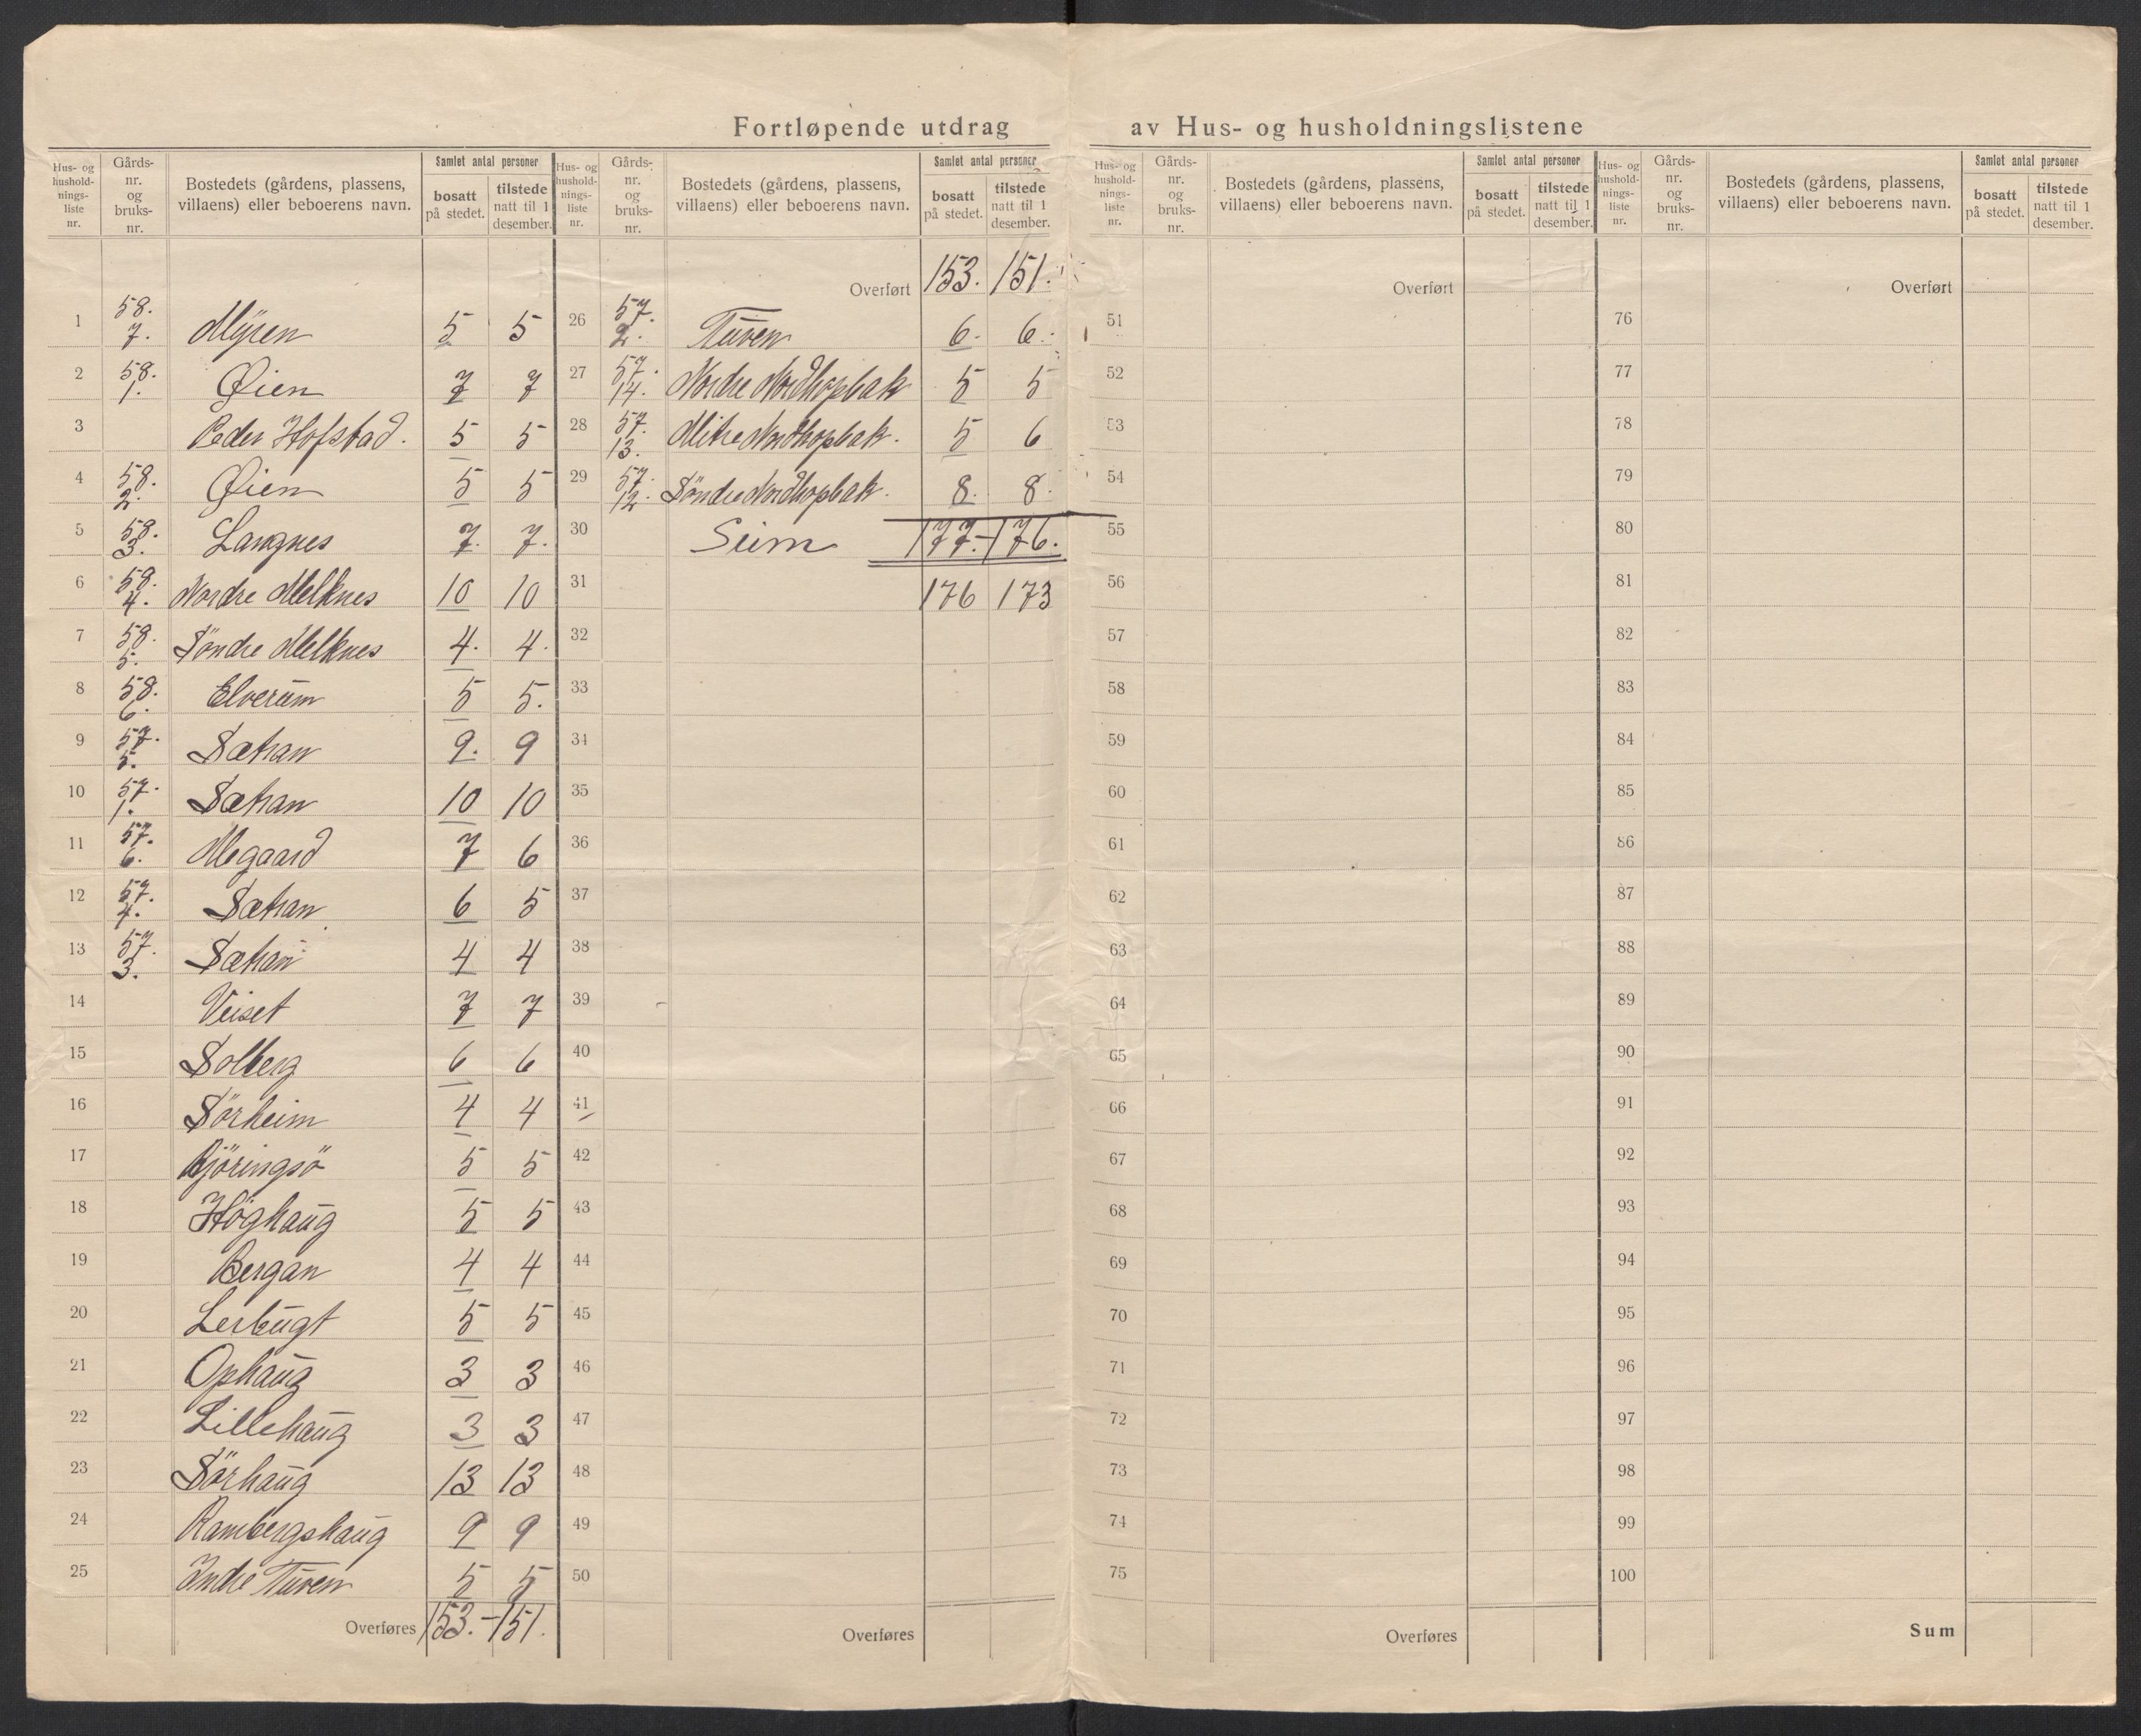 Fortløpende utdrag av Hus- og husholdningslistene
Hus- og hushold- nings- liste nr. | Gårds- nr. og bruks- nr. | Bostedets (gårdens, plassens, villaens) eller beboerens navn. | Samlet antal personer | bosatt på stedet. | tilstede natt til 1 desember.
1 58. 7. Myren 5 5
2 58. 1. Øien 7 7
3 Peder Hofstad. 5 5
4 58. 2. Øien 5 5
5 58. 3. Langnes 7. 7.
6 58. 4. Nordre Melknes 10 10
7 58. 5. Söndre Melknes 4. 4.
8 58. 6. Elverum 5 5.
9 57. 5. Sætran 9. 9
10 57. 1. Sætran 10 10
11 57. 6. Megaard 7 6
12 57. 4. Sætran 6 5
13 57. 3. Sætran 4 4
14 Veiset 7 7
15 Solberg 6 6
16 Sörheim 4 4
17 Björingsö 5 5
18 Höghaug 5 5
19 Bergan 4 4
20 Lerbugt 5 5
21 Ophaug 3 3
22 Lillehaug 3 3
23 Sörhaug 13 13
24 Rambergshaug 9 9
25 Indre Tuven 5 5
Overføres 153.-151.
Hus- og hushold- nings- liste nr. | Gårds- nr. og bruks- nr. | Bostedets (gårdens, plassens, villaens) eller beboerens navn. | Samlet antal personer | bosatt på stedet. | tilstede natt til 1 desember.
Overført 153. 151.
26 57. 2. Tuven 6. 6.
27 57. 14. Nordre Nordhopbak 5 5
28 57. 13. Mitre Nordhopbak. 5 6
29 57. 12. Söndre Nordhopbak. 8. 8.
30 Sum 177.-176.
31 176 173
32
33
34
35
36
37
38
39
40
41
42
43
44
45
46
47
48
49
50
Overføres
Hus- og hushold- nings- liste nr. | Gårds- nr. og bruks- nr. | Bostedets (gårdens, plassens, villaens) eller beboerens navn. | Samlet antal personer | bosatt på stedet. | tilstede natt til 1 desember.
Overført
51
52
53
54
55
56
57
58
59
60
61
62
63
64
65
66
67
68
69
70
71
72
73
74
75
Overføres
Hus- og hushold- nings- liste nr. | Gårds- nr. og bruks- nr. | Bostedets (gårdens, plassens, villaens) eller beboerens navn. | Samlet antal personer | bosatt på stedet. | tilstede natt til 1 desember.
Overført
76
77
78
79
80
81
82
83
84
85
86
87
88
89
90
91
92
93
94
95
96
97
98
99
100
Sum